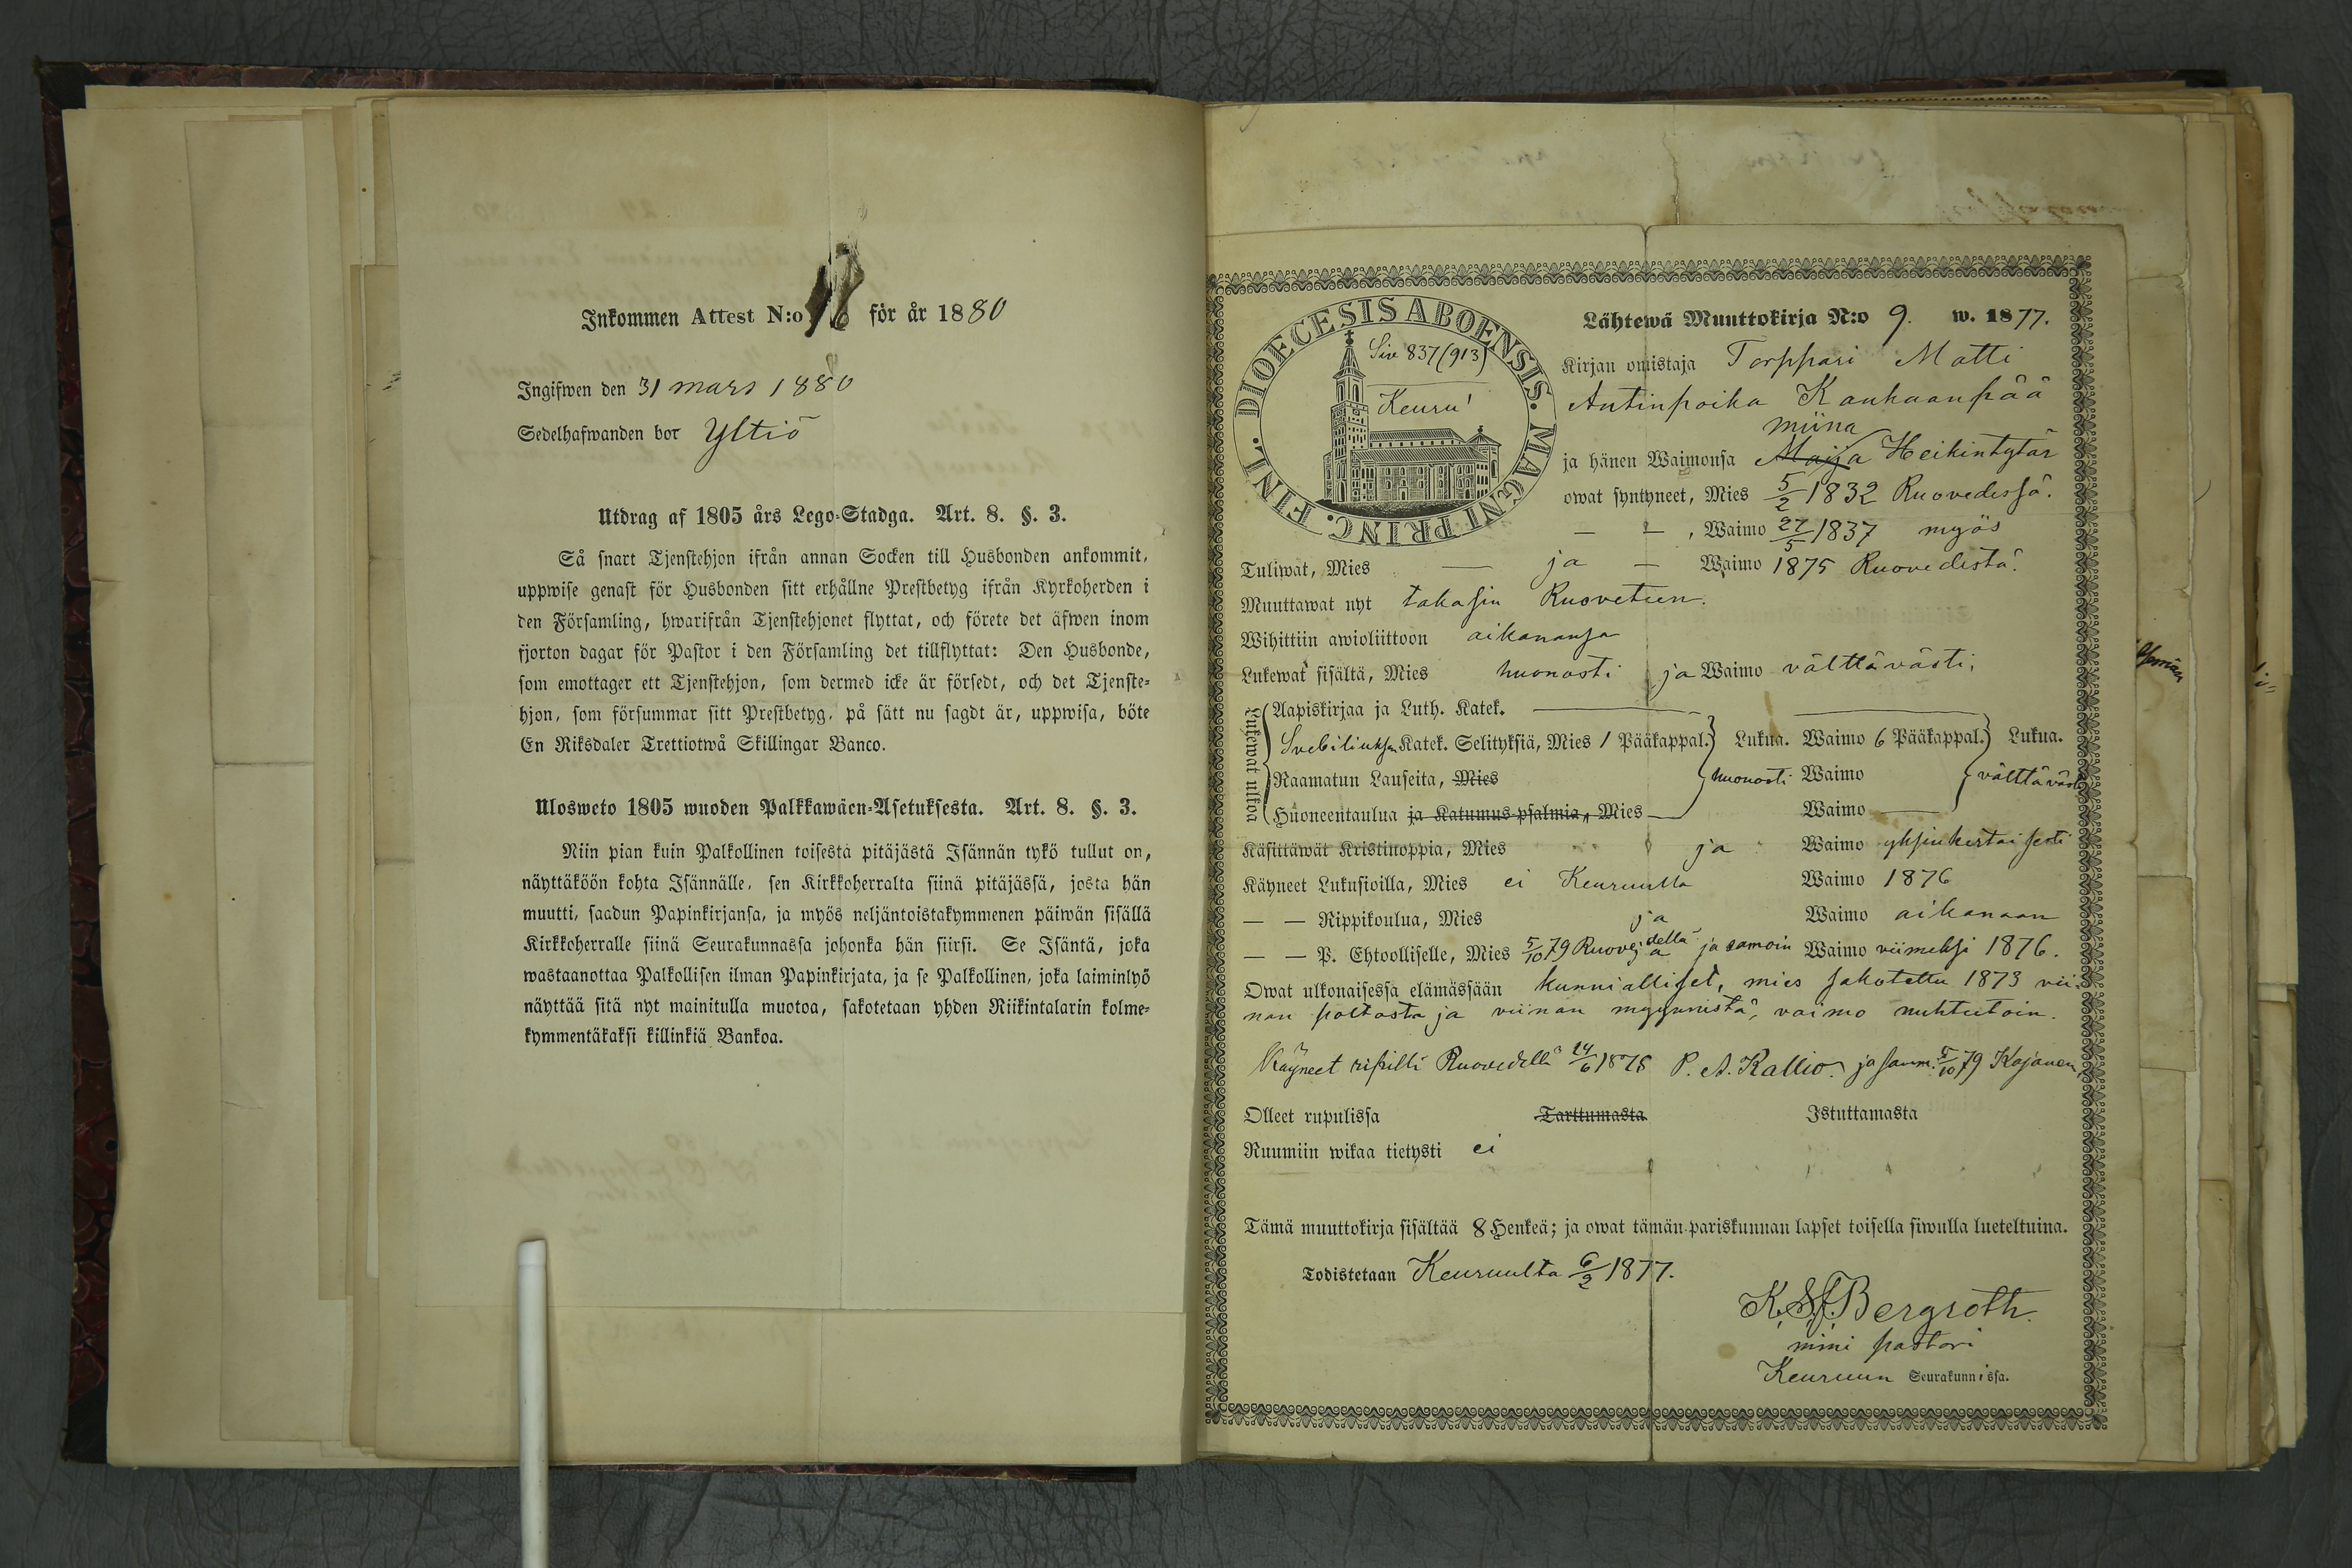 Inkommen Attest N:o för år 1880
Ingifwen den 31 mars 1880
Sedelhafwanden bor Yltiö
Utdrag af 1805 års Lego-Stadga. Art. 8. §. 3.
Så snart Tjenstehjon ifrån annan Socken till Husbonden ankommit,
uppwise genast för Husbonden sitt erhållne Prestbetyg ifrån Kyrkoherden i
den Församling, hwarifrån Tjenstehjonet flyttat, och förete det äfwen inom
fjorton dagar för Pastor i den Församling det tillflyttat: Den Husbonde,
som emottager ett Tjenstehjon, som dermed icke är försedt, och det Tjenste-
hjon, som försummar sitt Prestbetyg, på sätt nu sagdt är, uppwisa, böte
En Riksdaler Trettiotwå Skillingar Banco.
Ulosweto 1805 wuoden Palkkawäen-Asetuksesta. Art. 8. §. 3.
Niin pian kuin Palkollinen toisesta pitäjästä Isännän tykö tullut on,
näyttäköön kohta Isännälle, sen Kirkkoherralta siinä pitäjässä, josta hän
muutti, saadun Papinkirjansa, ja myös neljäntoistakymmenen päiwän sisällä
Kirkkoherralle siinä Seurakunnassa johonka hän siirsi. Se Isäntä, joka
wastaanottaa Palkollisen ilman Papinkirjata, ja se Palkollinen, joka laiminlyö
näyttää sitä nyt mainitulla muotoa, sakotetaan yhden Riikintalarin kolme-
kymmentäkaksi killinkiä Bankoa.
DIOECESIS ABOENSIS. MAGNI PRINC. FINL.
Siv 837 (913)
Keuru
Lähtewä Muuttokirja N:o 9. w. 1877.
Kirjan omistaja Torppari Matti
Antinpoika Kauhaanpää
Miina
ja hänen Waimonsa Maija Heikintytär
owat syntyneet, Mies 5/2 1832 Ruovedessä.
— — , Waimo 27/5 1837 myös
Tuliwat, Mies — ja — Waimo 1875 Ruovedestä.
Muuttawat nyt takasin Ruoveteen.
Wihittiin awioliittoon aikanansa
Lukewat sisältä, Mies huonosti ja Waimo välttävästi,
Lukewat ulkoa
Aapiskirjaa ja Luth. Katek.
Svebiliuksen Katek. Selityksiä, Mies 1 Pääkappal. Lukua. Waimo 6 Pääkappal. Lukua.
Raamatun Lauseita, Mies huonosti Waimo välttäväst
Huoneentaulua ja Katumus-psalmia, Mies — Waimo —
Käsittäwät Kristinoppia, Mies ja Waimo yksinkertaisesti
Käyneet Lukusioilla, Mies ei Keuruulla Waimo 1876
— — Rippikoulua, Mies ja Waimo aikanaan
— — P. Ehtoolliselle, Mies 5/10 79 Ruovedellä ja samoin Waimo viimeksi 1876.
Owat ulkonaisessa elämässään kunnialliset, mies sakotettu 1873 vii-
nan poltosta ja viinan myynnistä, vaimo nuhteetoin.
Käyneet ripillä Ruovedellä 24/6 1878 P. A. Kallio. ja samm. 5/10 79 Kajanen,
Olleet rupulissa Tarttumasta Istuttamasta
Ruumiin wikaa tietysti ei
Tämä muuttokirja sisältää 8 Henkeä; ja owat tämän pariskunnan lapset toisella siwulla lueteltuina.
Todistetaan Keuruulta 6/2 1877.
Bergroth.
nimi pastori
Keuruun Seurakunnissa.